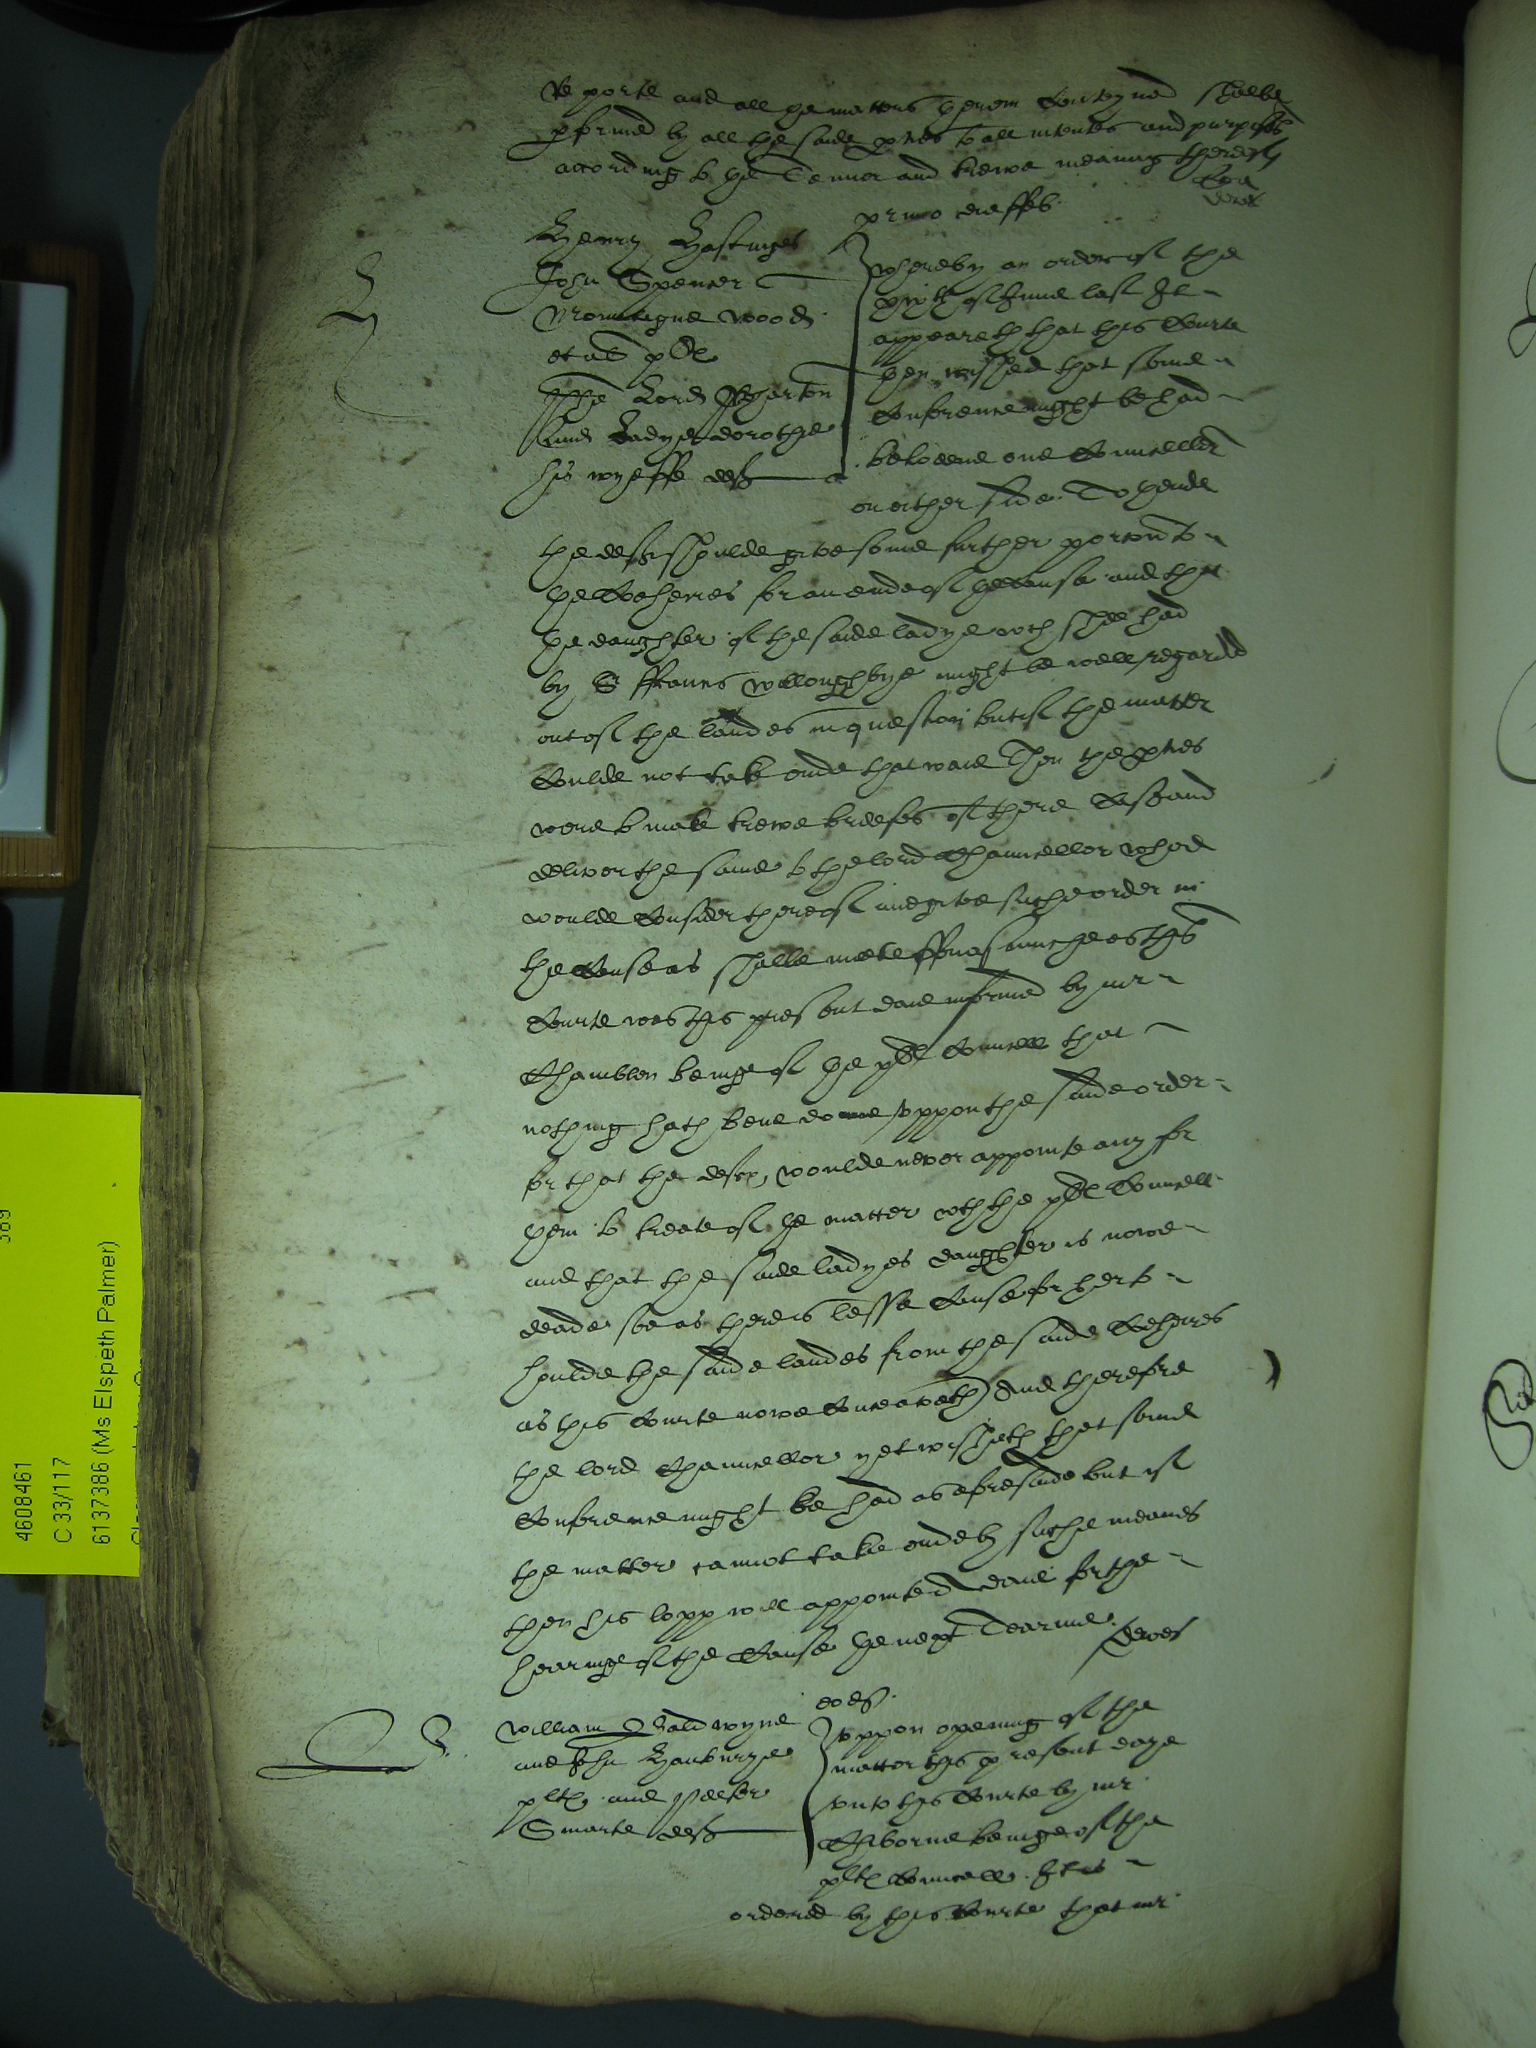 Reporte and all the matters therein conteyned shalbe
pformed by all the saide pties to all intentes and purposes
accordinge to the Tennor and trewe meaning thereof
primo die ffeb
Henry Hastinges
John Spencer
Mountegue Wood
et al plt
The Lord Wharton
and Ladye Dorothe
his wyeffe deft
whereby an order of the
of June last It
appeareth that this Courte
then wisshed that some
Conference might be had
betweene one Councellor
on either side To thende
the deftes shoulde give some further porcion to
the Coheires for an ende of the cause and that
the daughter of the saide ladye wch shee had
by Sr ffrancis Willoughbye might be well regarded
out of the landes in question but if the matter
Coulde not take ende that waie Then the pties
were to make trewe breefes of there Case and
deliver the same to the lord Chauncellor whoe
woulde Consider thereof and give suche order in
the Cause as shalbe meete fforasmuche as this
Courte was this present daie informed by mr
Chamblen beinge of the plt Councell that
nothing hath bene done uppon the saide order
for that the deftes woulde never appointe any for
them to treate of the matter wth the plt Councell
and that the saide ladyes daughter is nowe
deade soe as there is lesse Cause for her to
houlde the saide landes from the saide Coheires
as this Courte nowe Conceaveth And therefore
the lord Chauncellor yet wissheth that some
Conference might be had as aforesaide but if
the matter cannot take ende by suche meanes
then his lopp will appointe a daie for the
hearinge of the Cause the next Tearme
eodem
William Baldwyne
and John Hanburye
plts and Peeter
Smarte deft
Uppon opening of the
matter this present daye
unto this Courte by mr
Chiborne beinge of the
plts Councell It is
ordered by this Courte that mr
389
4608461
C 33/117
6137386 (Ms Elspeth Palmer)